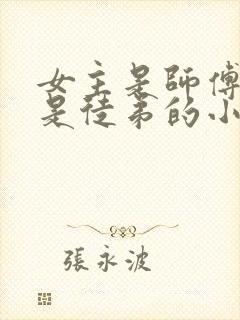 女主是師傅
是徒弟的小
張永波